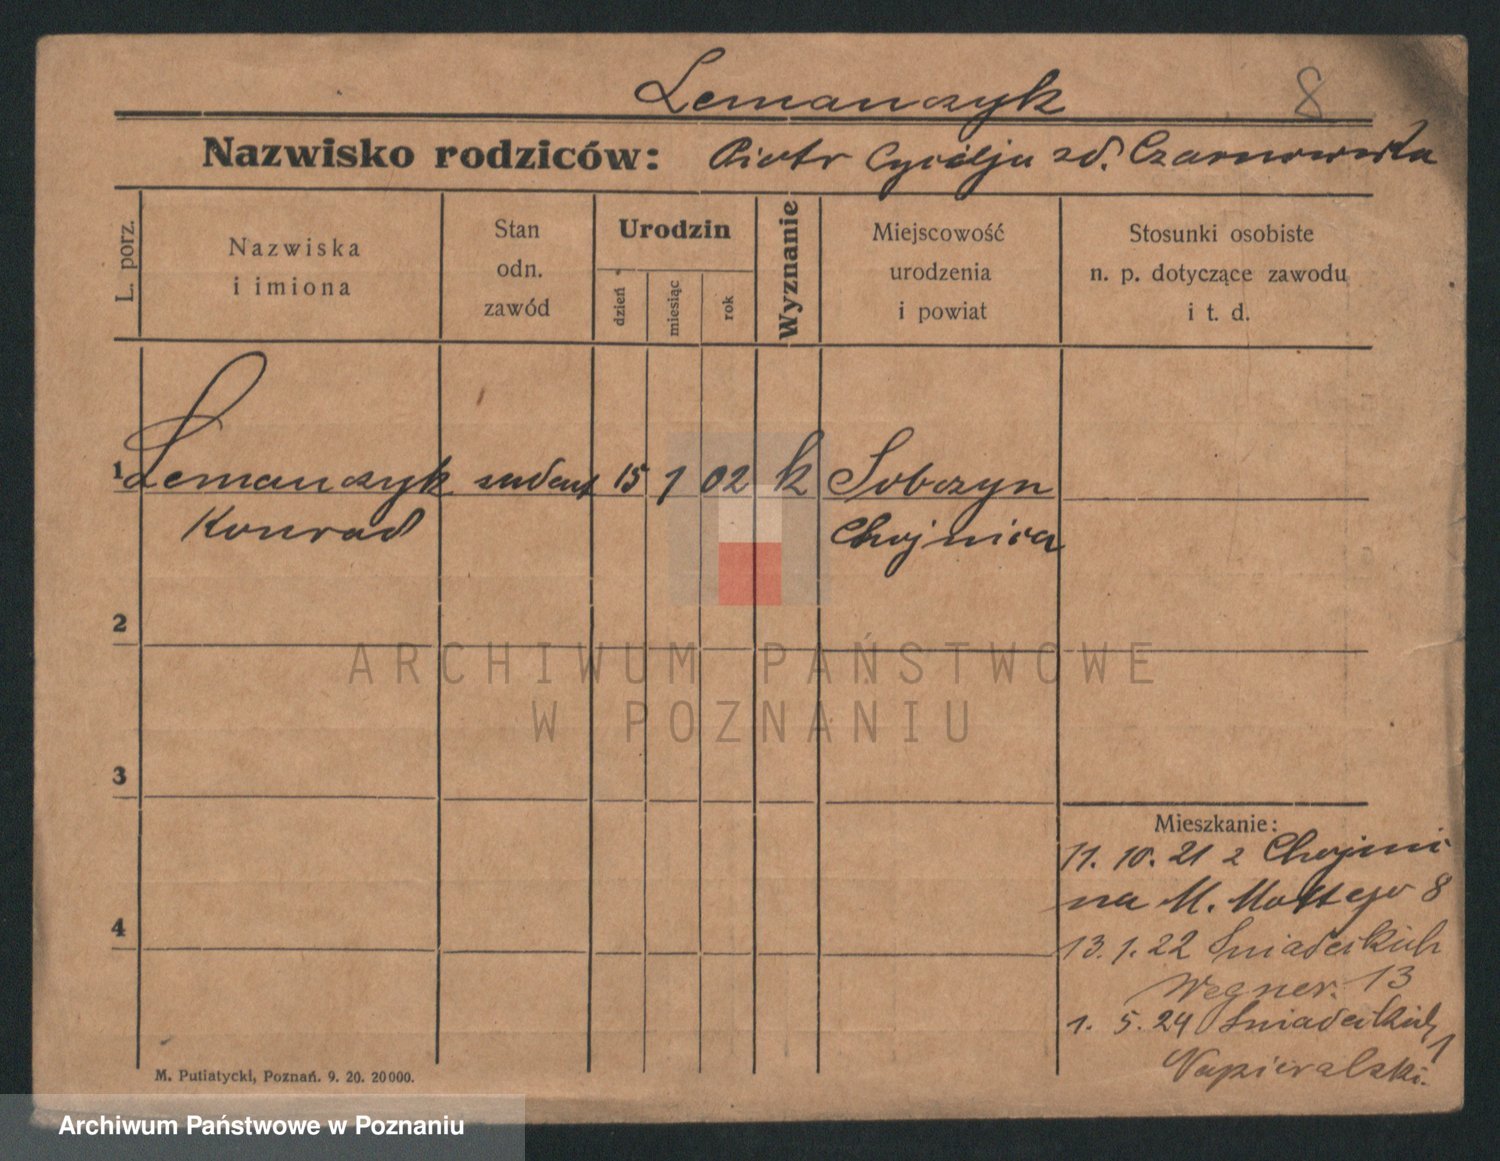 Lemanczyk 8
Nazwisko rodziców: Piotr Cycylja zd. Czarnowska
L. porz.
Nazwiska
i imiona
Stan
odn.
zawód
Urodzin
dzień
miesiąc
rok
Wyznanie
Miejscowość
urodzenia
i powiat
Stosunki osobiste
n. p. dotyczące zawodu
i t. d.
1 Lemanczyk student 15 1 02 k Sobczyn
Konrad Chojnica
2
3
4
Mieszkanie:
11. 10. 21 z Chojnic
na M. Mottego 8
13. 1. 22 Śniadeckich
Wegner. 13
1. 5. 24 Śniadeckich 1
Napieralski.
M. Putiatycki, Poznań. 9. 20. 20000.
ARCHIWUM PAŃSTWOWE
W POZNANIU
Archiwum Państwowe w Poznaniu